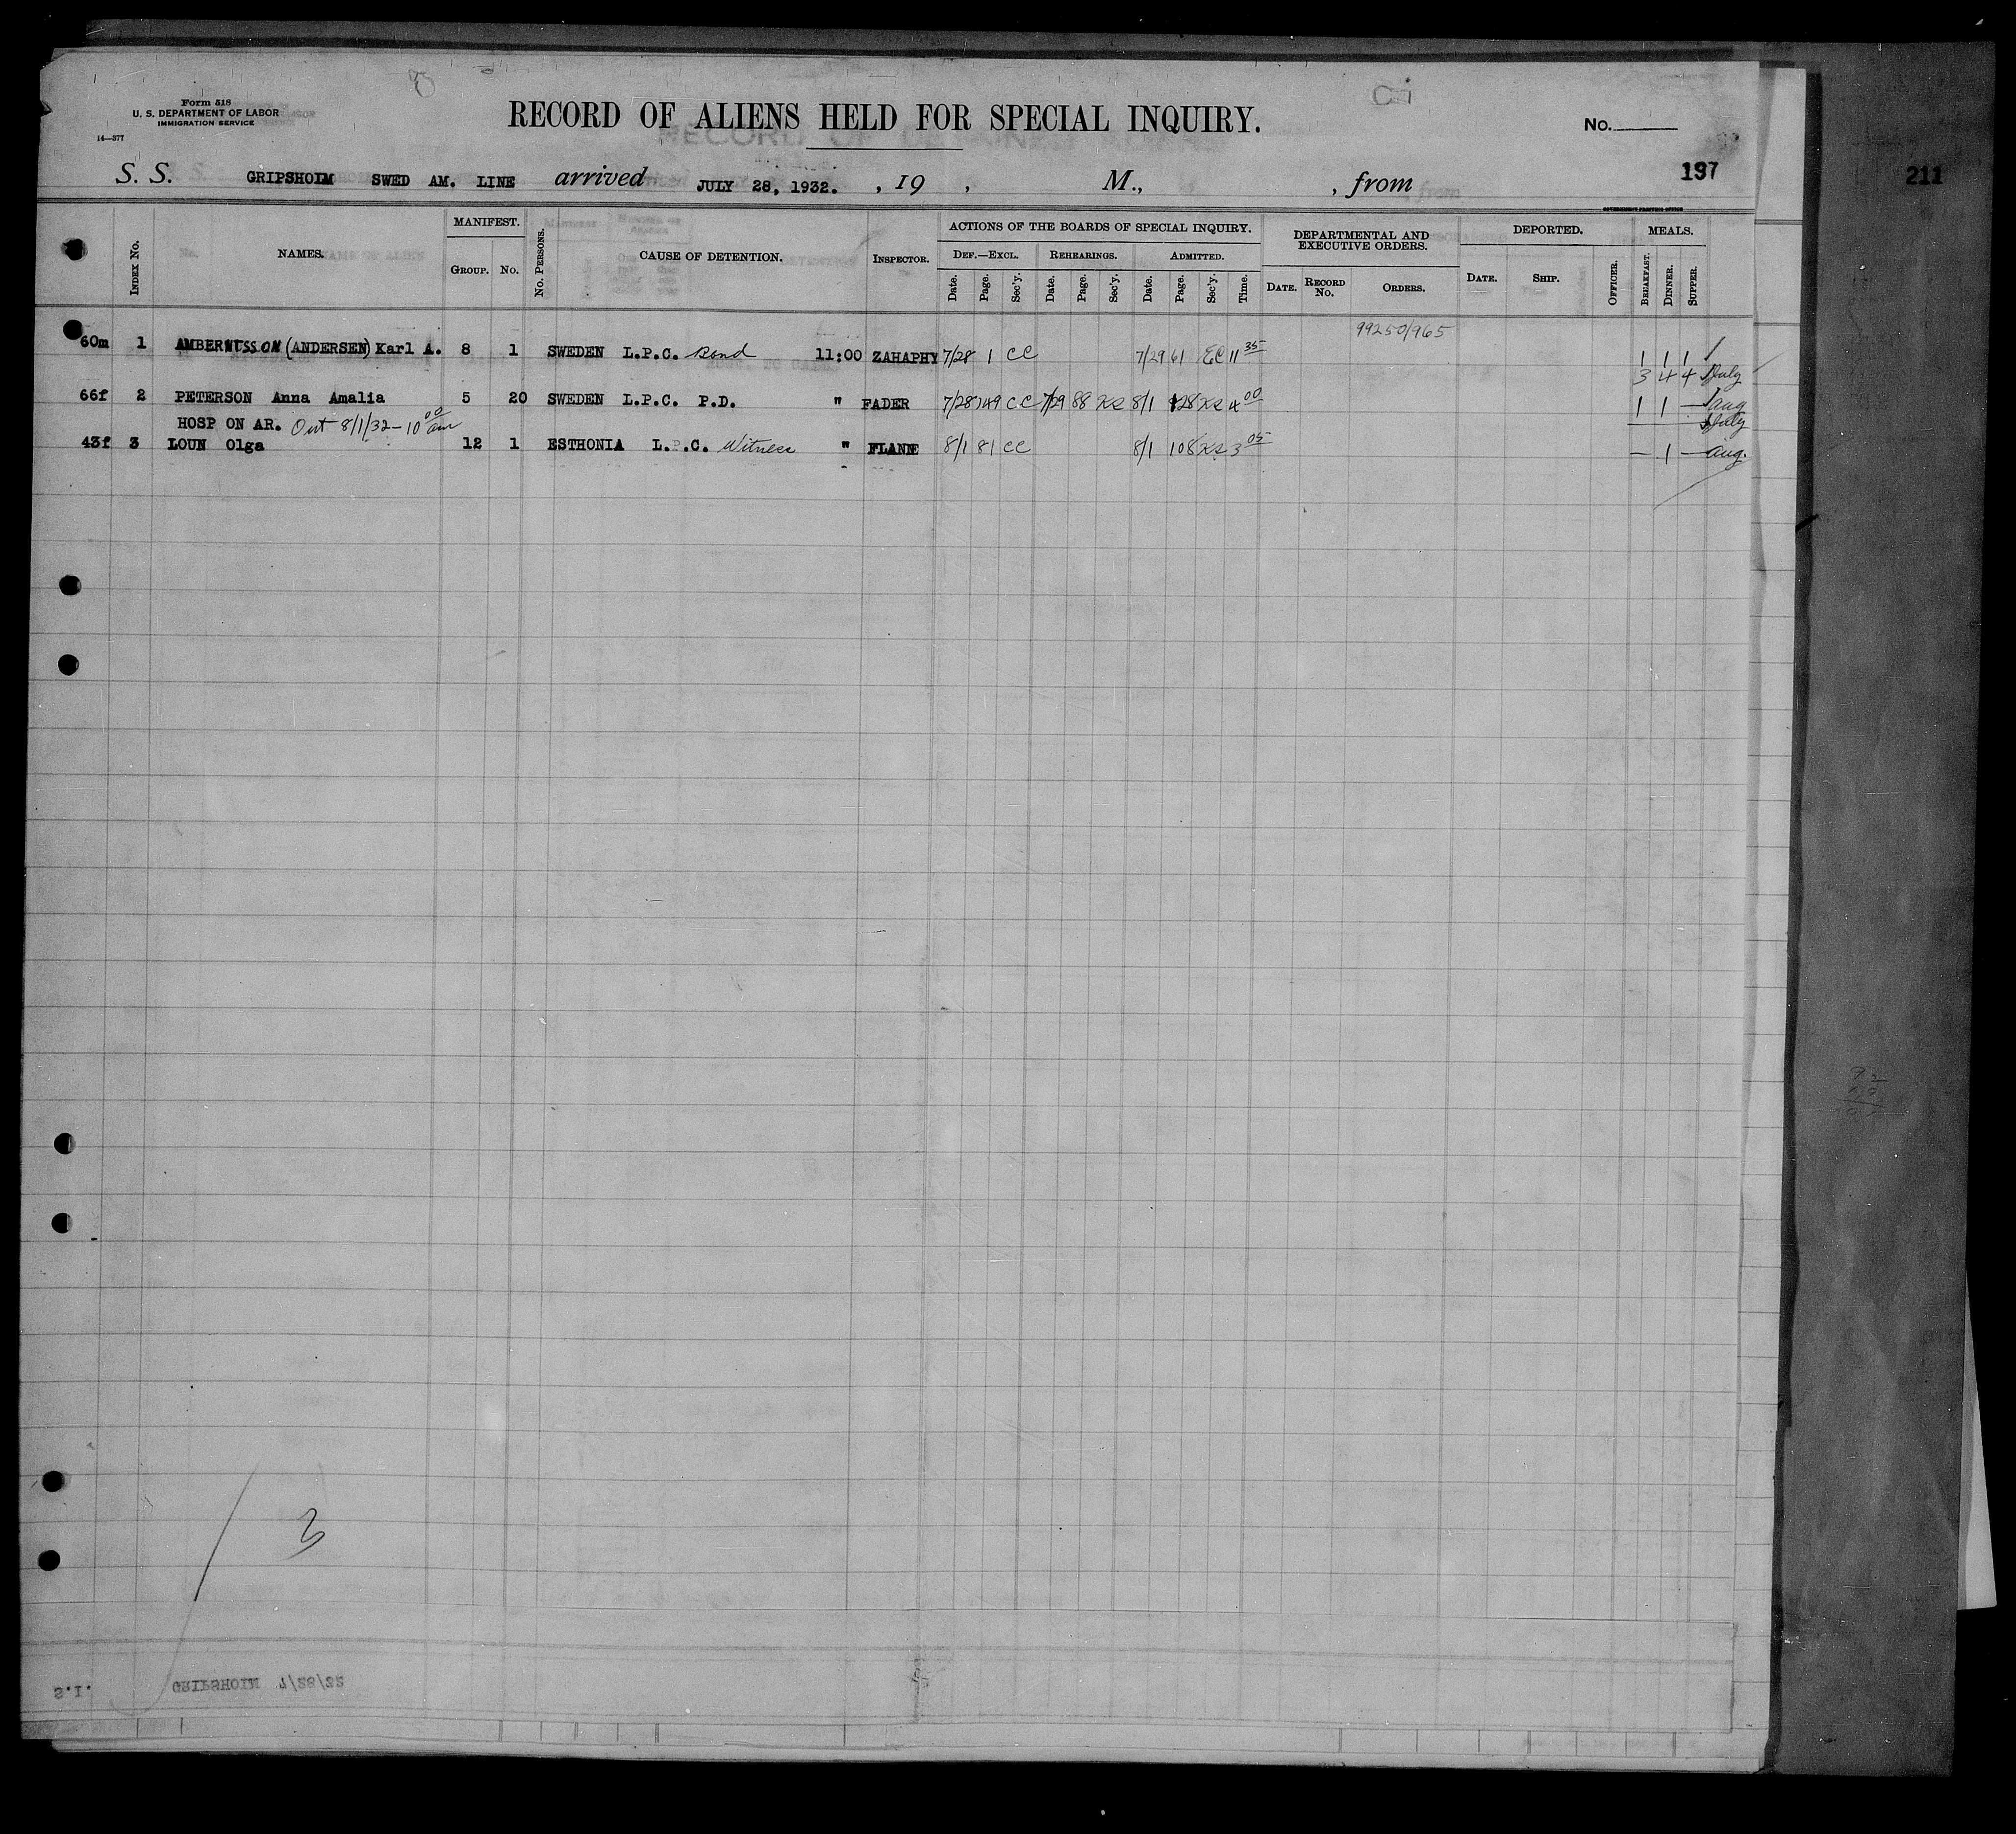 Form 518
U. S. DEPARTMENT OF LABOR
IMMIGRATION SERVICE
14—377
RECORD OF ALIENS HELD FOR SPECIAL INQUIRY.
No.
S. S. GRIPSHOLM SWED AM. LINE arrived JULY 28, 1932. , 19 , M., , from
197
211
INDEX No. NAMES. MANIFEST. GROUP. No. No. PERSONS. CAUSE OF DETENTION. INSPECTOR. ACTIONS OF THE BOARDS OF SPECIAL INQUIRY. DEF.—EXCL. Date. Page. Sec'y. REHEARINGS. Date. Page. Sec'y. ADMITTED. Date. Page. Sec'y. Time. DEPARTMENTAL AND EXECUTIVE ORDERS. DATE. RECORD No. ORDERS. DEPORTED. DATE. SHIP. OFFICER. MEALS. BREAKFAST. DINNER. SUPPER.
99250/965
60m 1 (ANDERSEN) Karl A. 8 1 SWEDEN L.P.C. Bond 11:00 ZAHAPHY 7/28 1 CC 7/29 61 EC 11 35 1 1 1
3 4 4 July
66f 2 PETERSON Anna Amalia 5 20 SWEDEN L.P.C. P.D. " FADER 7/28 149 CC 7/29 88 8/1 128 4 00 1 1 — Aug
HOSP ON AR. Out 8/1/32 - 10 00 am July
43f 3 LOUN Olga 12 1 ESTHONIA L.P.C. Witness " FLANE 8/1 81 CC 8/1 108 3 05 — 1 — Aug.
3
S.I. GRIPSHOLM 7/28/32